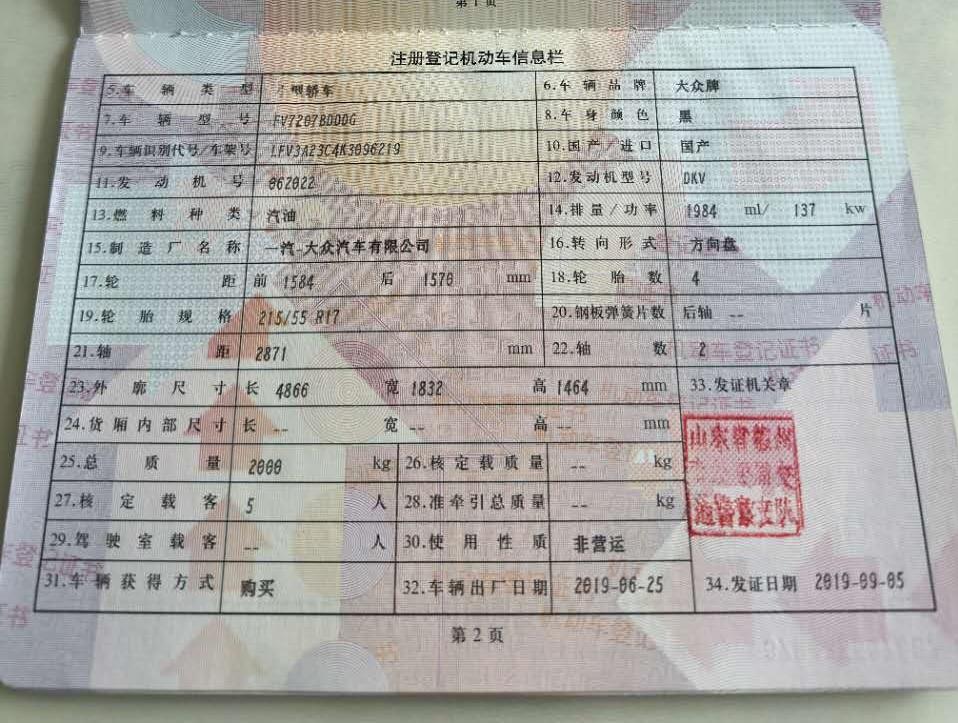 第1页
注册登记机动车信息栏
5.车辆类型 型轿车 6.车辆品牌 大众牌
7.车辆型号 FV7207BDDDG 8.车身颜色 黑
9.车辆识别代号/车架号 LFV3A23C4K3096219 10.国产/进口 国产
11.发动机号 062022 12.发动机型号 DKV
13.燃料种类 汽油 14.排量/功率 1984 ml/ 137 kw
15.制造厂名称 一汽-大众汽车有限公司 16.转向形式 方向盘
17.轮距 前 1584 后 1570 mm 18.轮胎数 4
19.轮胎规格 215/55 R17 20.钢板弹簧片数 后轴 -- 片
21.轴距 2871 mm 22.轴数 2
23.外廓尺寸 长 4866 宽 1832 高 1464 mm 33.发证机关章
24.货厢内部尺寸 长 -- 宽 -- 高 -- mm
25.总质量 2000 kg 26.核定载质量 -- kg
27.核定载客 5 人 28.准牵引总质量 -- kg
29.驾驶室载客 -- 人 30.使用性质 非营运
31.车辆获得方式 购买 32.车辆出厂日期 2019-06-25 34.发证日期 2019-09-05
第2页